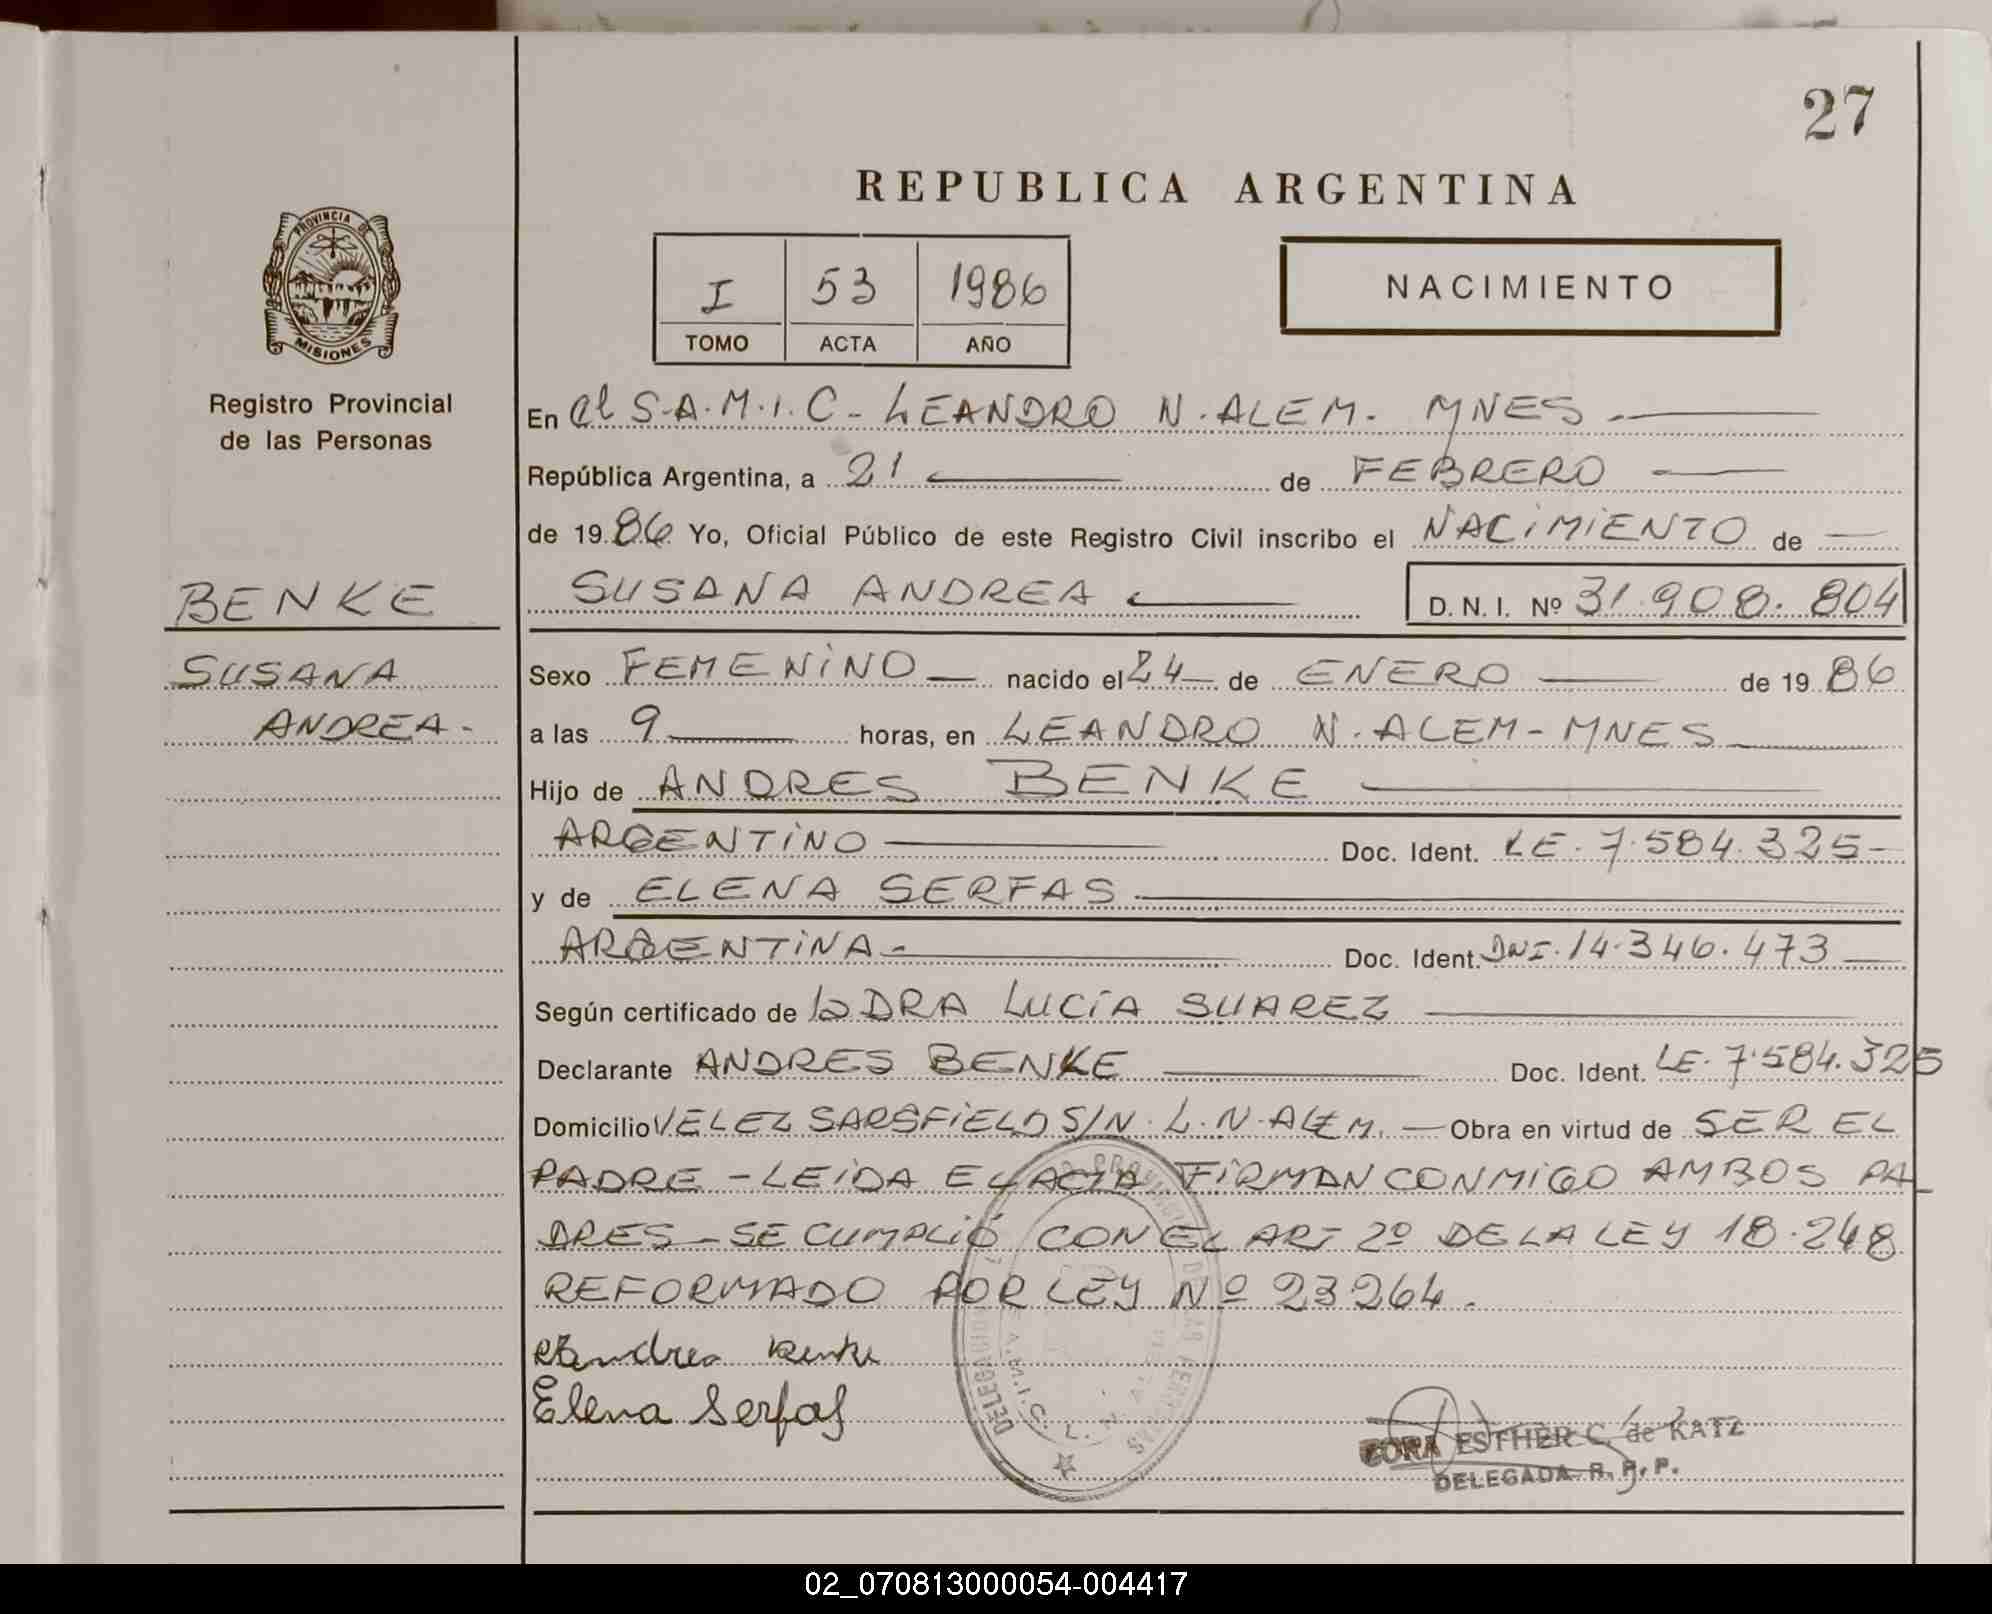 27
REPUBLICA ARGENTINA
PROVINCIA DE
MISIONES
Registro Provincial
de las Personas
I 53 1986
TOMO ACTA AÑO
NACIMIENTO
En el S.A.M.I.C - LEANDRO N. ALEM - MNES
República Argentina, a 21 de FEBRERO
de 19 86 Yo, Oficial Público de este Registro Civil inscribo el NACIMIENTO de
BENKE
SUSANA ANDREA D.N.I. Nº 31.908.804
SUSANA
ANDREA -
Sexo FEMENINO nacido el 24 de ENERO de 19 86
a las 9 horas, en LEANDRO N. ALEM - MNES
Hijo de ANDRES BENKE
ARGENTINO Doc. Ident. LE. 7.584.325-
y de ELENA SERFAS
ARGENTINA - Doc. Ident. DNI. 14.346.473
Según certificado de la DRA LUCÍA SUAREZ
Declarante ANDRES BENKE Doc. Ident. LE. 7.584.325
Domicilio VELEZ SARSFIELD S/N. L.N. ALEM. - Obra en virtud de SER EL
PADRE - LEIDA EL ACTA FIRMAN CONMIGO AMBOS PA-
DRES - SE CUMPLIÓ CON EL ART 2º DE LA LEY 18.248
REFORMADO POR LEY Nº 23264.
Andres Benke
Elena Serfas
S.A.M.I.C. L. N. ALEM
CORA ESTHER C. de KATZ
DELEGADA R. P. P.
02_070813000054-004417